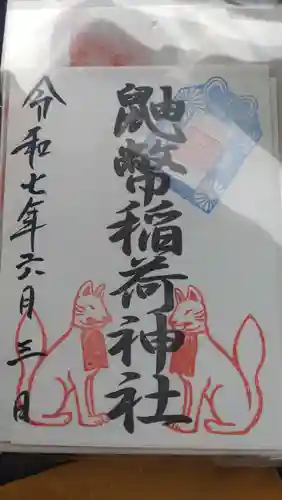 鼬幣稲荷神社
令和七年六月三日